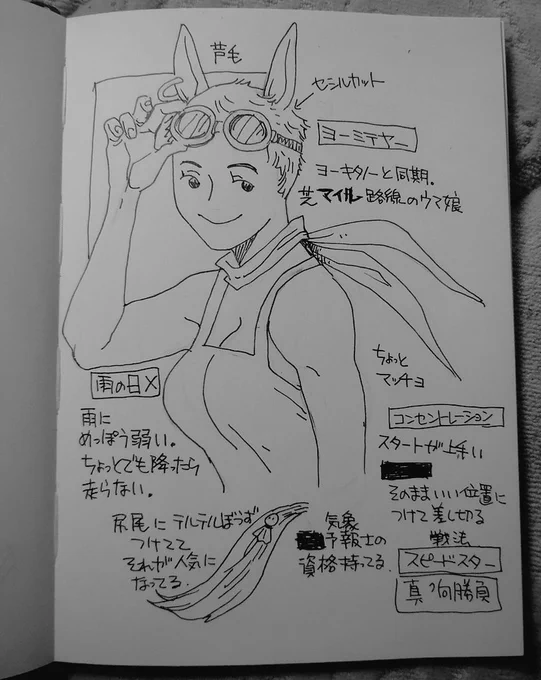 芦毛
セシルカット
ヨーミテヤー
ヨーキタノーと同期。
芝マイル路線のウマ娘
ちょっと
マッチョ
雨の日×
雨に
めっぽう弱い。
ちょっとでも降ったら
走らない。
コンセントレーション
スタートが上手い
そのままいい位置に
つけて差し切る
戦法
スピードスター
真っ向勝負
尻尾にテルテルぼうず
つけてて
それが人気に
なってる。
気象
予報士の
資格持ってる。